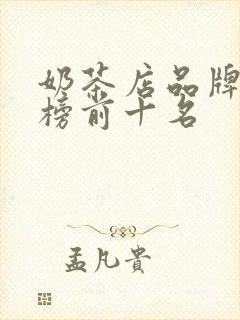 奶茶店品牌
榜前十名
孟凡貴